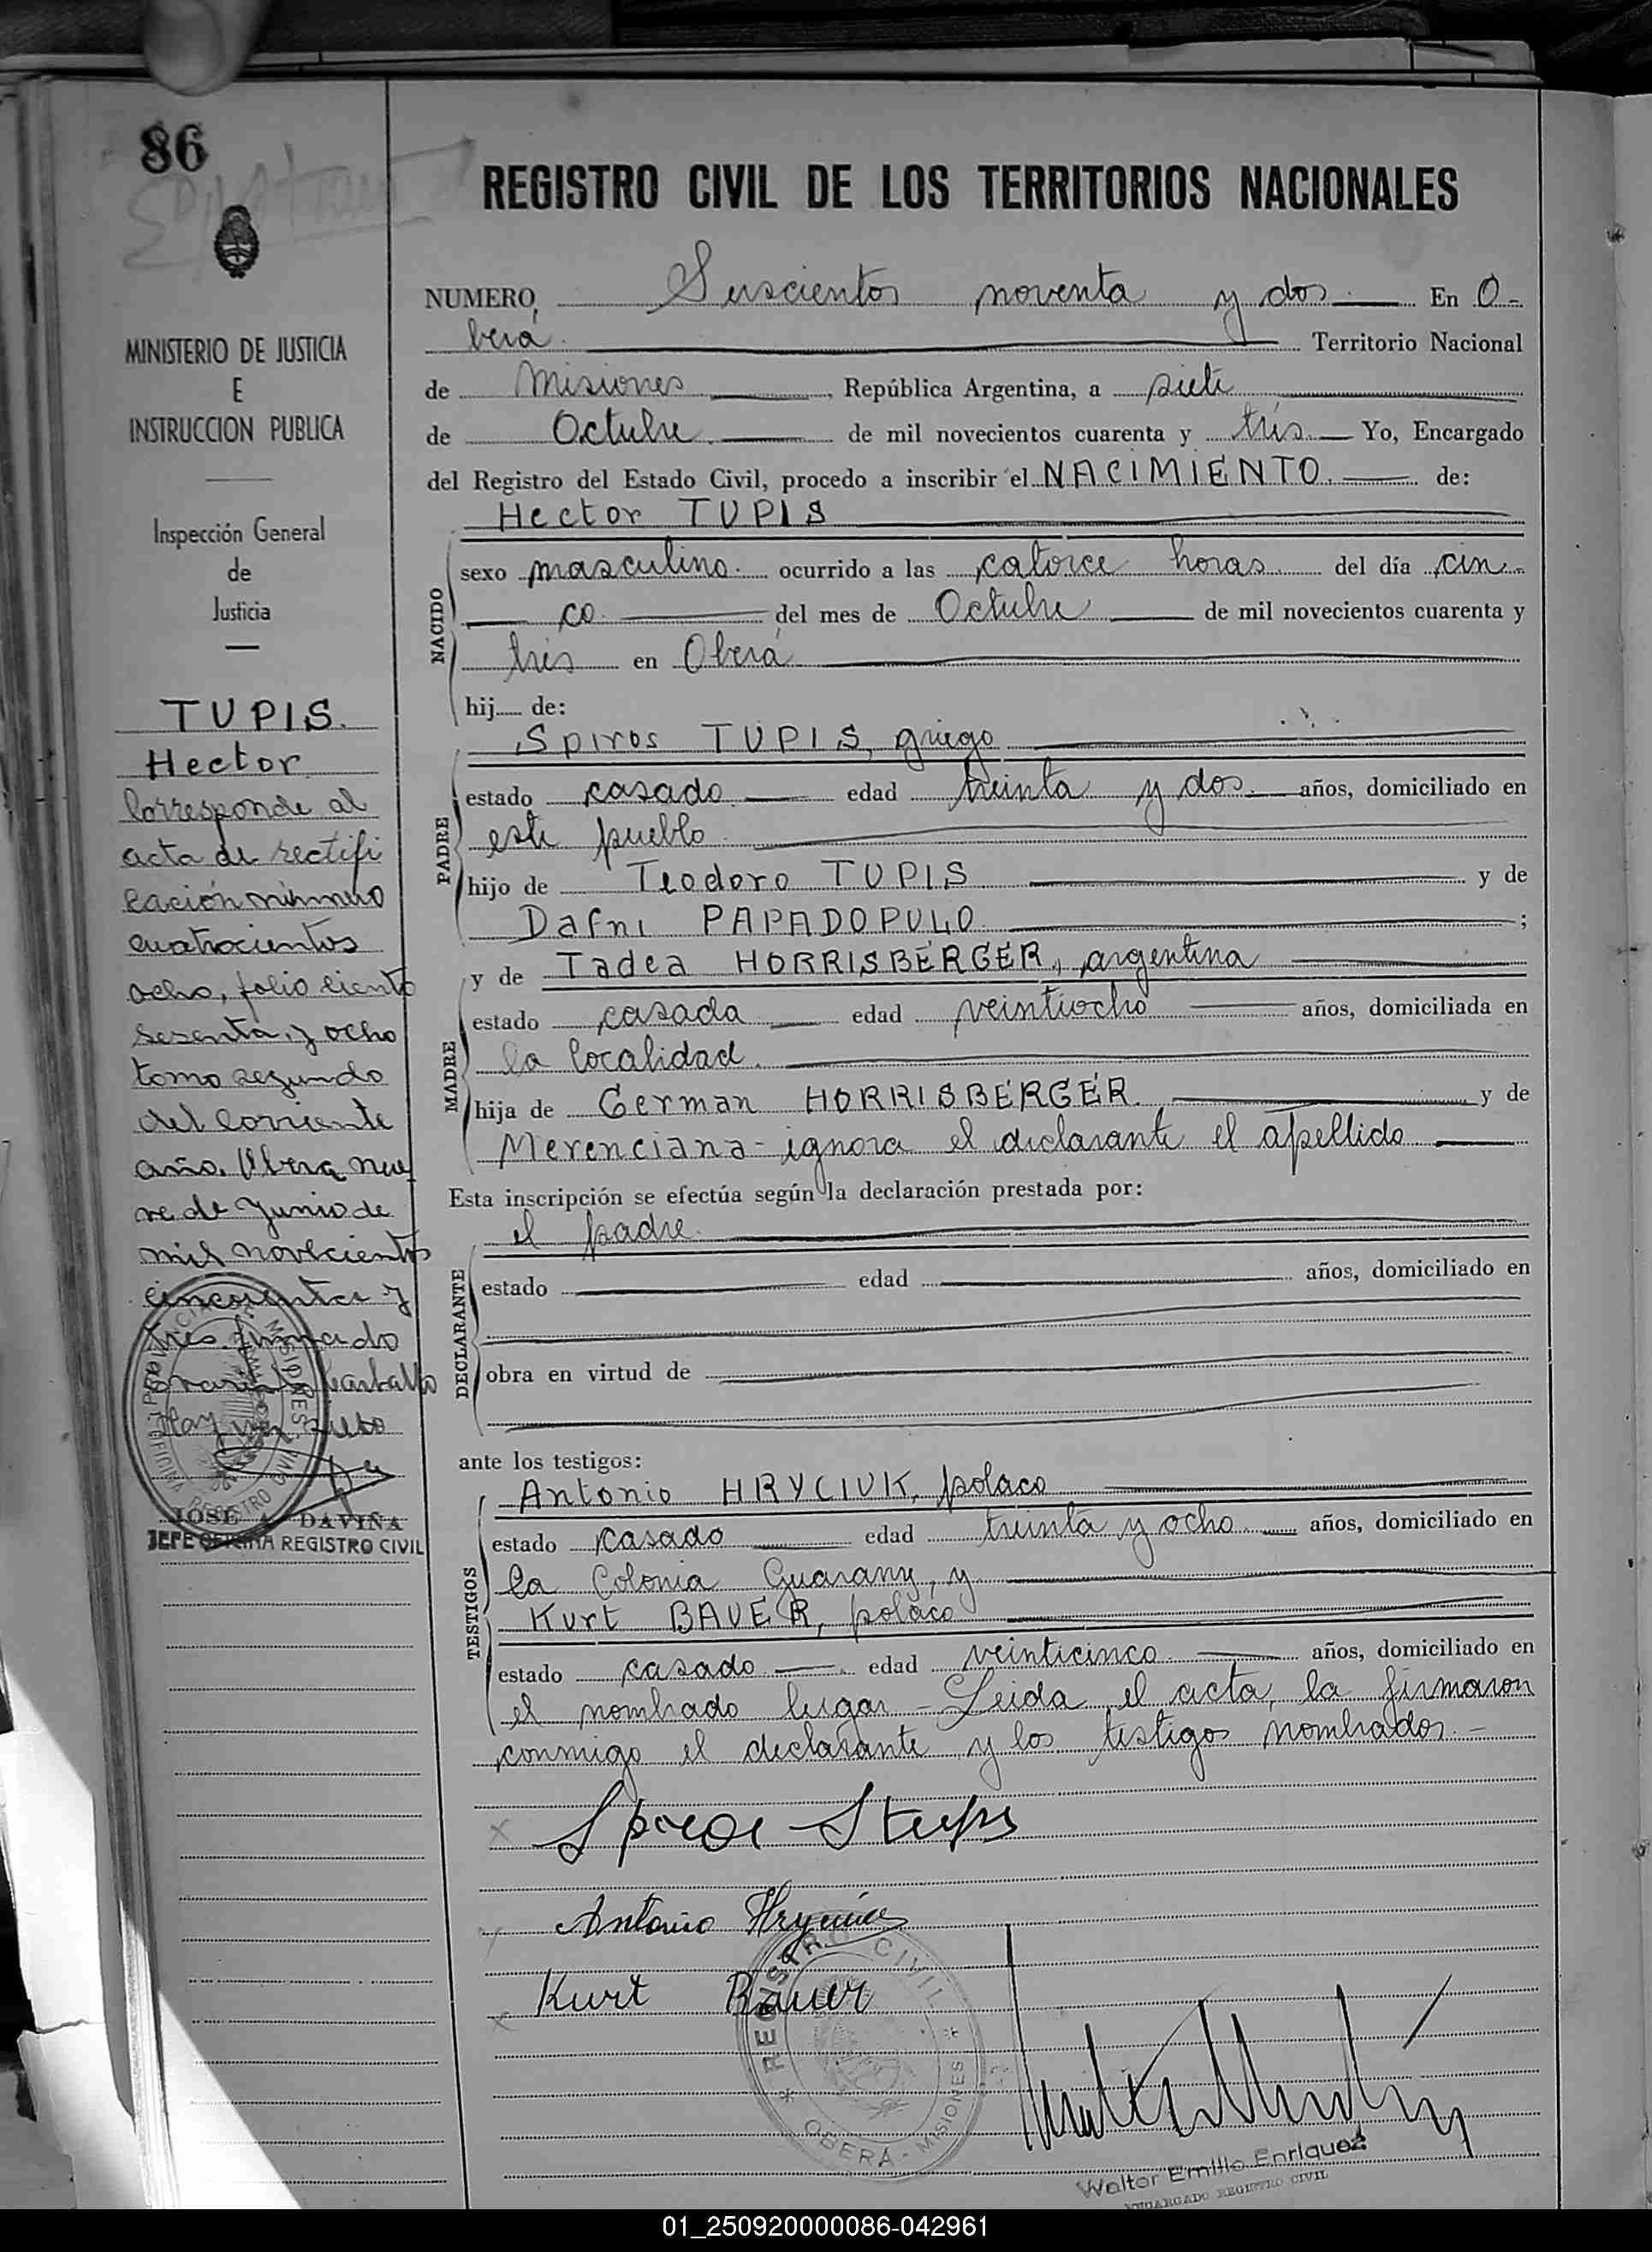 86
REGISTRO CIVIL DE LOS TERRITORIOS NACIONALES
MINISTERIO DE JUSTICIA
E
INSTRUCCION PUBLICA
Inspección General
de
Justicia
TUPIS.
Hector
Corresponde al
acta de rectifi
cación número
cuatrocientos
ocho, folio ciento
sesenta y ocho
tomo segundo
del corriente
año. Oberá nue
ve de Junio de
mil novecientos
cincuenta y
tres. firmado
Hay un sello
JOSE A. DAVIÑA
JEFE OFICINA REGISTRO CIVIL
NUMERO Seiscientos noventa y dos En O-
berá. Territorio Nacional
de Misiones, República Argentina, a siete
de Octubre de mil novecientos cuarenta y tres. Yo, Encargado
del Registro del Estado Civil, procedo a inscribir el NACIMIENTO. de:
Hector TUPIS
NACIDO
sexo masculino. ocurrido a las catorce horas del día cin-
co del mes de Octubre de mil novecientos cuarenta y
tres en Oberá
hij de:
Spiros TUPIS, griego
PADRE
estado casado edad treinta y dos años, domiciliado en
este pueblo
hijo de Teodoro TUPIS y de
Dafni PAPADOPULO ;
y de Tadea HORRISBERGER, argentina
MADRE
estado casada edad veintiocho años, domiciliada en
la localidad.
hija de German HORRISBERGER. y de
Merenciana - ignora el declarante el apellido
Esta inscripción se efectúa según la declaración prestada por:
el padre
DECLARANTE
estado edad años, domiciliado en
obra en virtud de
ante los testigos:
Antonio HRYCIUK, polaco
TESTIGOS
estado casado edad treinta y ocho años, domiciliado en
la Colonia Guarany, y
Kurt BAUER, polaco
estado casado edad veinticinco años, domiciliado en
el nombrado lugar - Leida el acta, la firmaron
conmigo el declarante y los testigos nombrados. -
Antonio
Kurt Bauer
REGISTRO CIVIL
OBERÁ - MISIONES
Walter Emilio Enriquez
ENCARGADO REGISTRO CIVIL
01_250920000086-042961